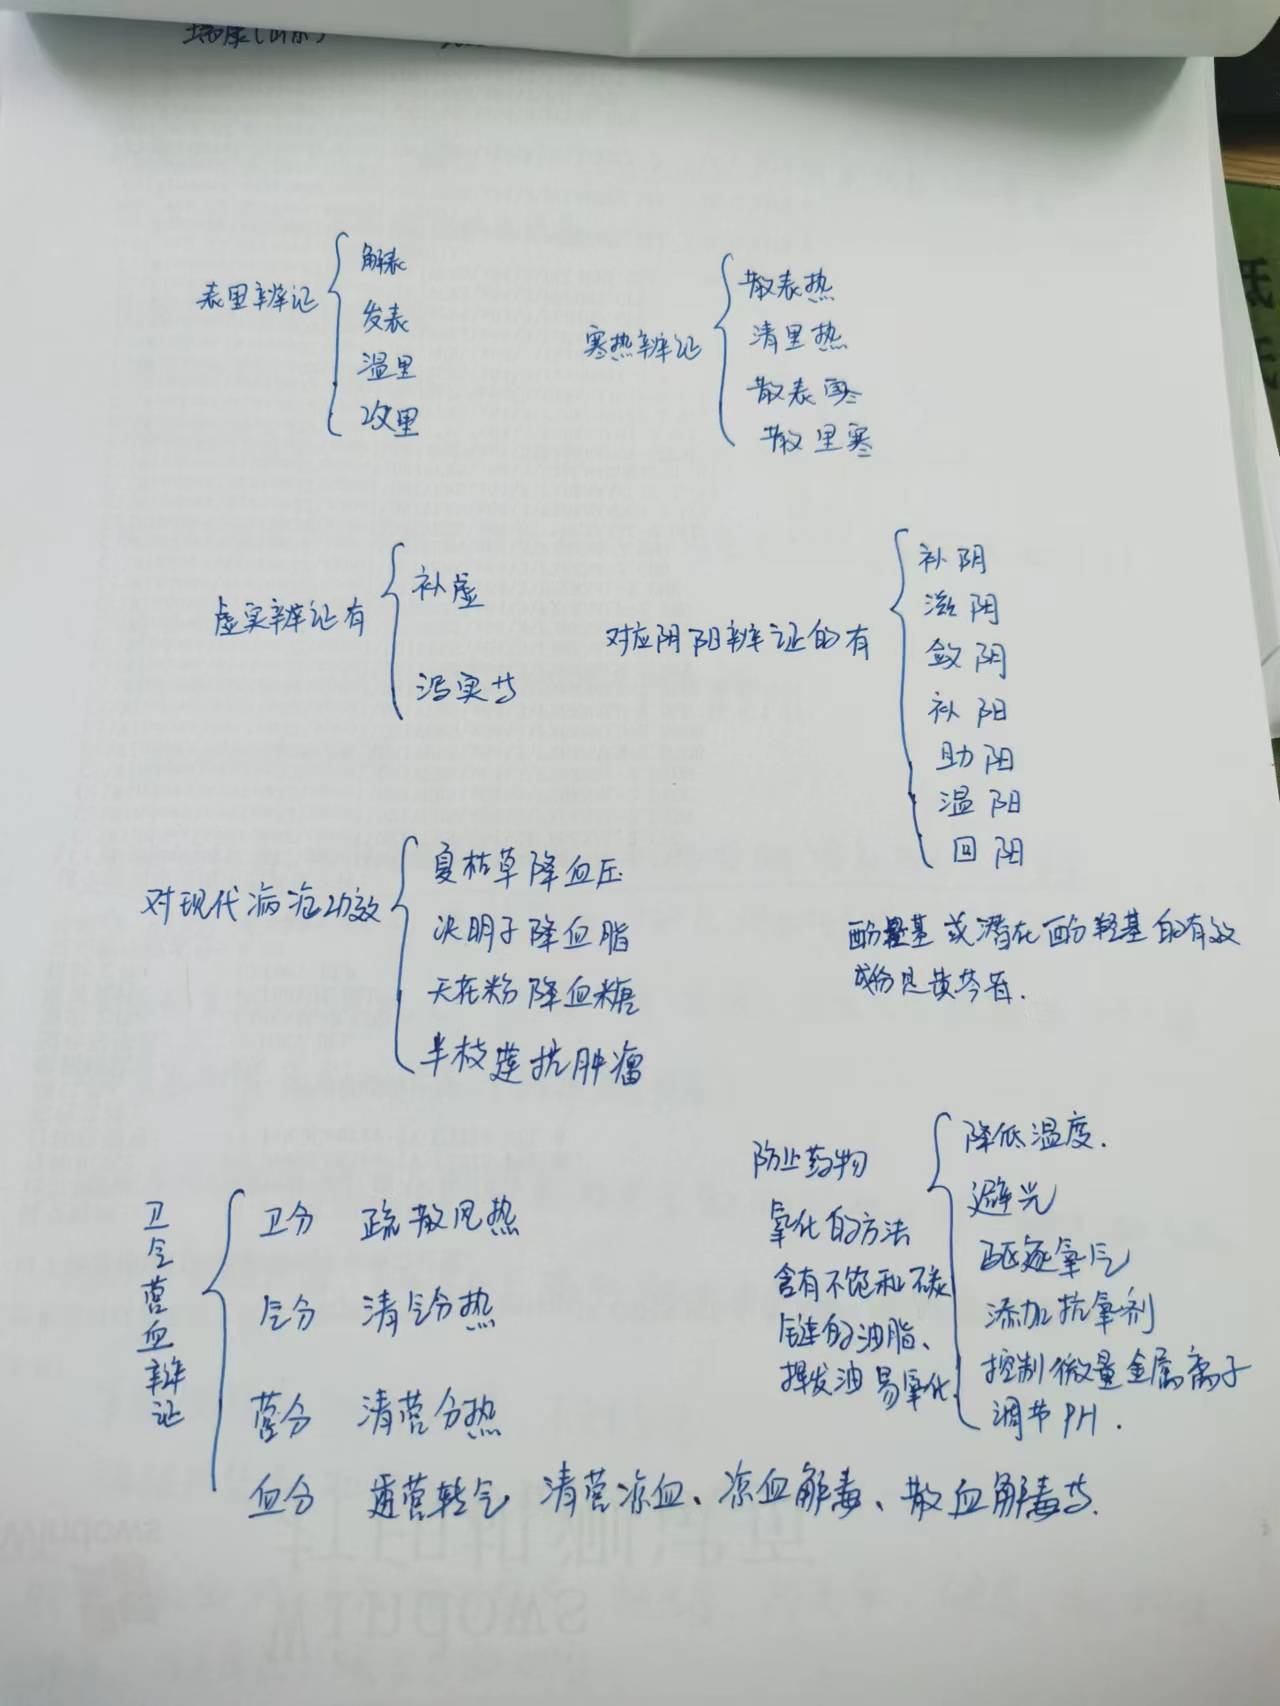 表里辨证
解表
发表
温里
攻里
寒热辨证
散表热
清里热
散表寒
散里寒
虚实辨证有
补虚
泻实等
对应阴阳辨证的有
补阴
滋阴
敛阴
补阳
助阳
温阳
回阳
对现代病症功效
夏枯草降血压
决明子降血脂
天花粉降血糖
半枝莲抗肿瘤
酚羟基或潜在酚羟基的有效
成份是黄芩苷.
防止药物
氧化的方法
含有不饱和碳
链的油脂、
挥发油易氧化.
降低温度.
避光
驱逐氧气
添加抗氧剂
控制微量金属离子
调节PH.
卫气营血辩证
卫分 疏散风热
气分 清气分热
营分 清营分热
血分 透营转气 清营凉血、凉血解毒、散血解毒等.